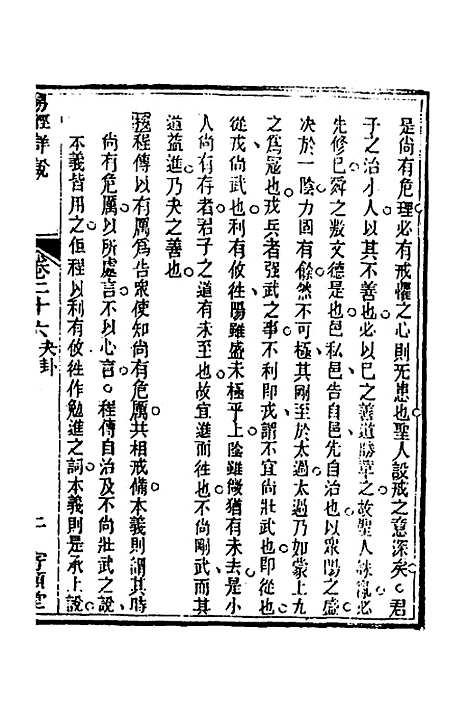 是尚有危理必有戒懼之心則无患也聖人設戒之意深矣君
子之治小人以其不善也必以已之善道勝革之故聖人誅亂必
先修已舜之敷文德是也邑私邑告自邑先自治也以眾陽之盛
決於一陰力固有餘然不可極其剛至於太過太過乃如蒙上九
之爲寇也戎兵者强武之事不利即戎謂不宜尚壯武也即從也
從戎尚武也利有攸往陽雖盛未極乎上陰雖微猶有未去是小
人尚有存者君子之道有未至也故宜進而往也不尚剛武而其
道益進乃夬之善也
程傳以有厲爲告眾使知尚有危厲共相戒備本義則謂其時
尚有危厲以所處言不以心言程傳自治及不尚壯武之說
本義皆用之但程以利有攸往作勉進之詞本義則是承上說
易經詳說
卷二十六夬卦
二
寄願堂